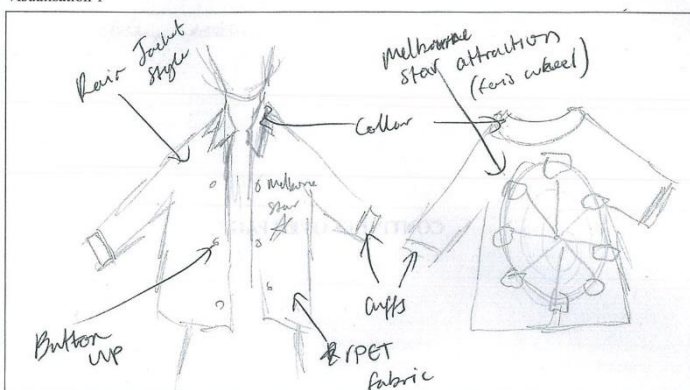 Visualisation 1
Rain Jacket
Style
Melbourne
Star attraction
(ferris wheel)
Collar
Melbourne
Star
Cuffs
Button
UP
rPET
fabric